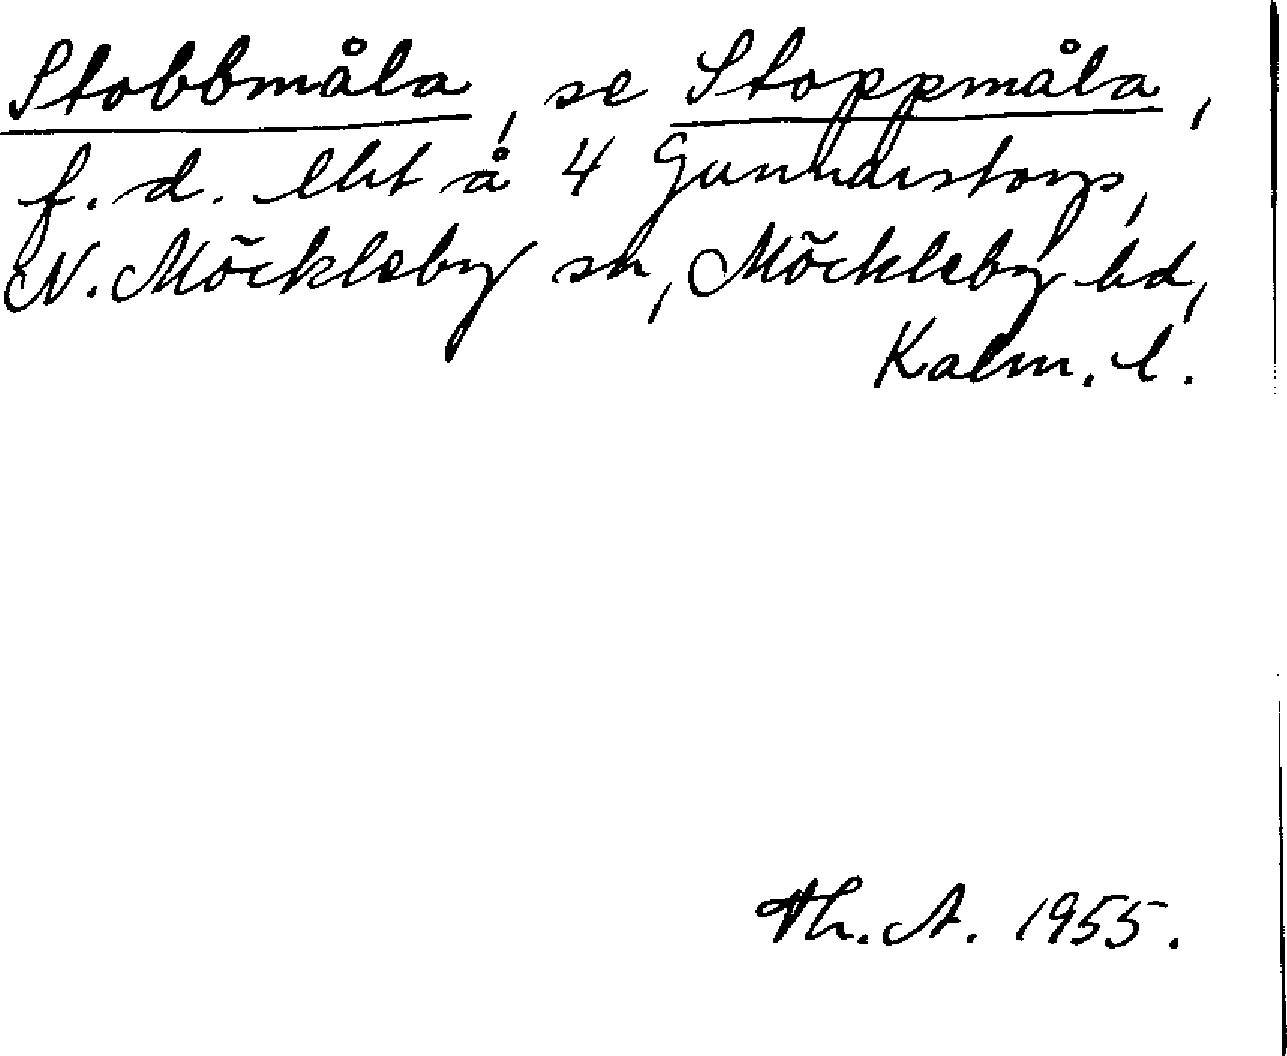 Stobbmåla, se Stoppmåla,
f. d. lht å 4 Gunnarstorp,
N. Möckleby sn, Möckleby hd,
Kalm. l.
Th. A. 1955.